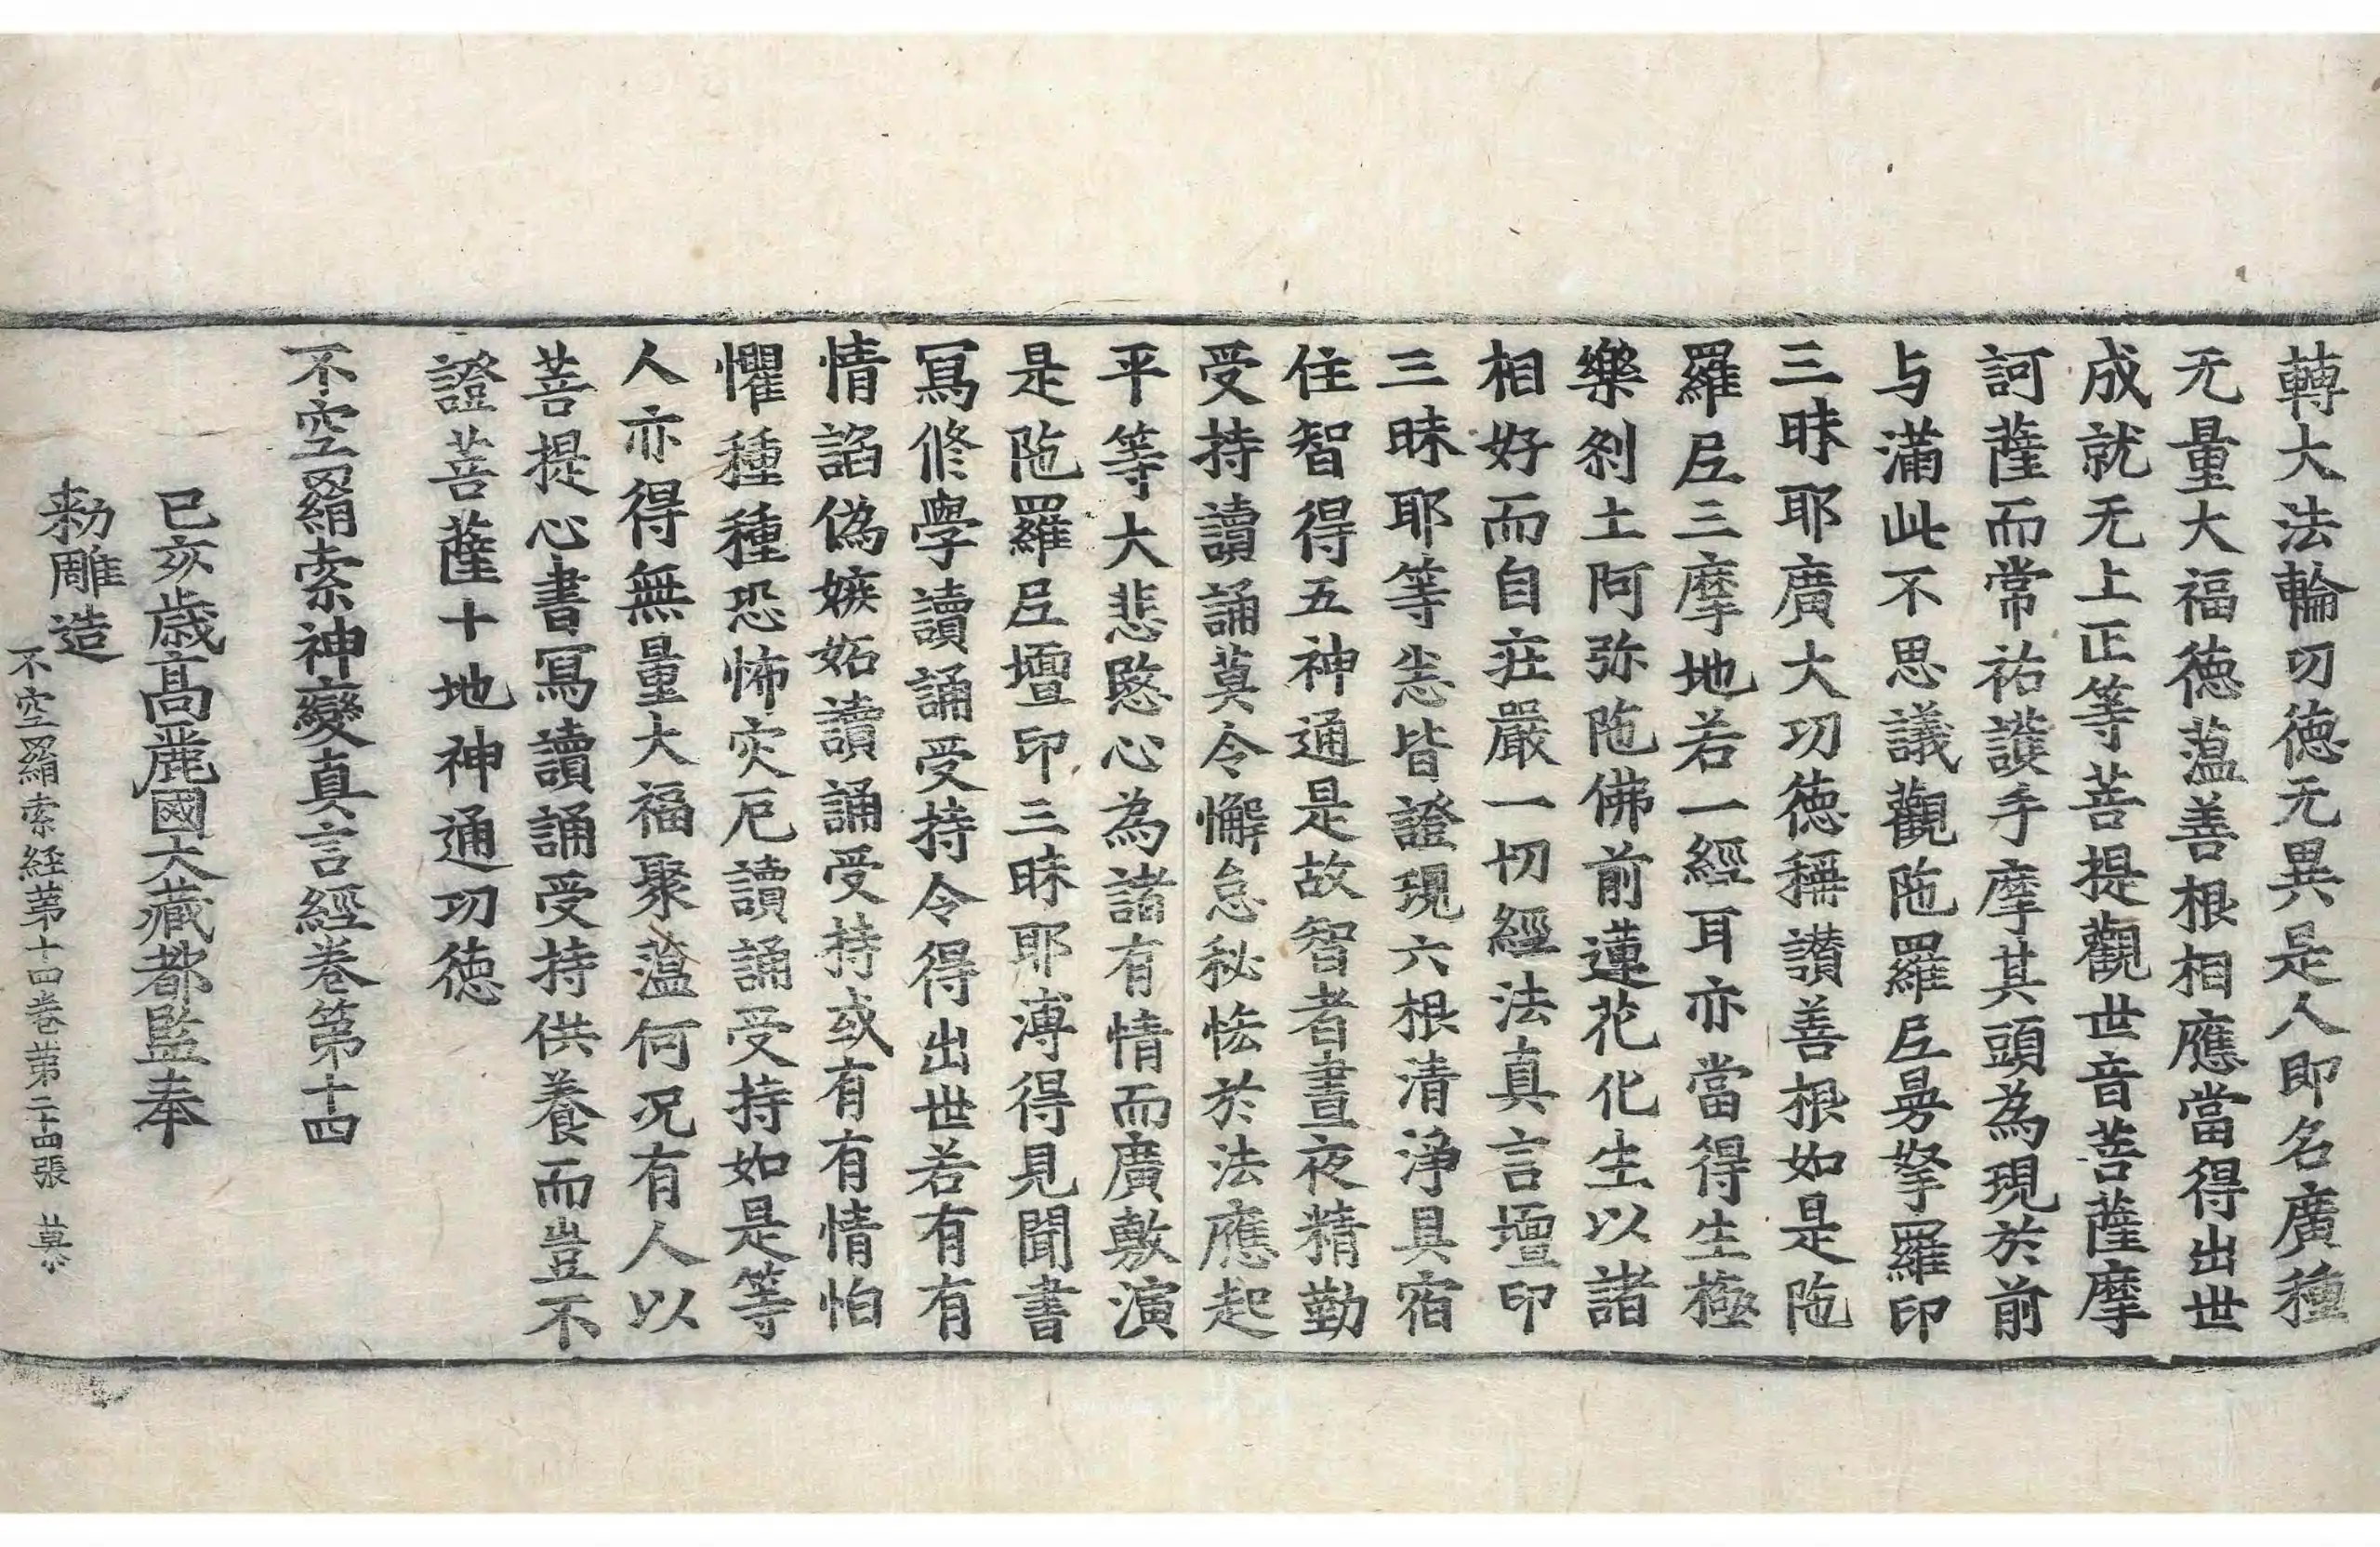 轉大法輪功德无異是人即名廣種
无量大福德薀善根相應當得出世
成就无上正等菩提觀世音菩薩摩
訶薩而常祐護手摩其頭為現於前
与滿此不思議觀陁羅尼曼拏羅印
三昧耶廣大功德稱讃善根如是陁
羅尼三摩地若一經耳亦當得生極
樂剎土阿弥陁佛前蓮花化生以諸
相好而自莊嚴一切經法真言壇印
三昧耶等悉皆證現六根清淨具宿
住智得五神通是故智者晝夜精勤
受持讀誦莫令懈怠秘恡於法應起
平等大悲愍心為諸有情而廣敷演
是陁羅尼壇印三昧耶溥得見聞書
寫修學讀誦受持令得出世若有有
情諂偽嫉妬讀誦受持或有有情怕
懼種種恐怖灾厄讀誦受持如是等
人亦得無量大福聚薀何況有人以
菩提心書寫讀誦受持供養而豈不
證菩薩十地神通功德
不空羂索神變真言經卷第十四
己亥歲高麗國大藏都監奉
勑雕造
不空羂索経苐十四卷苐二十四張 莫